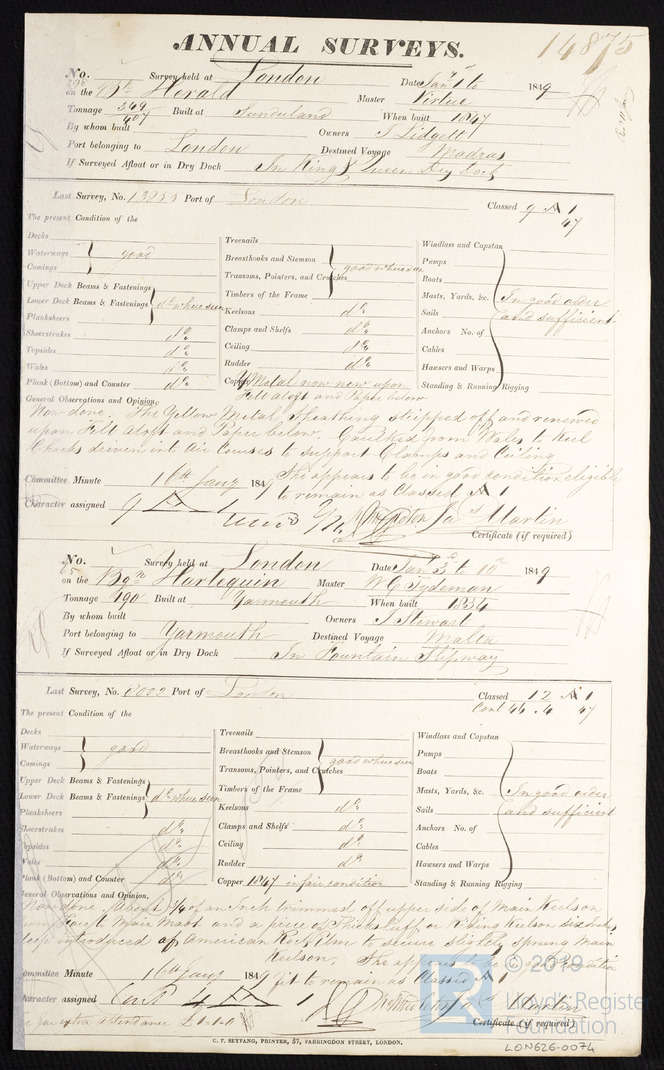 ANNUAL SURVEYS.
14875
No. Survey held at London Date Jany 1 to 1849
398 on the Bk Herald Master Virtue
Tonnage 349 407 Built at Sunderland When built 1847
By whom built Owners J Lidgett
Port belonging to London Destined Voyage Madras
If Surveyed Afloat or in Dry Dock In King & Queen Dry Dock
Last Survey, No. 13233 Port of London Classed 9 A 1
47
The present Condition of the
Decks
Waterways
Comings
good
Upper Deck Beams & Fastenings
Lower Deck Beams & Fastenings
Plansheers
do where seen
Sheerstrakes do
Topsides do
Wales do
Plank (Bottom) and Counter do
Treenails
Breasthooks and Stemson
Transoms, Pointers, and Crutches
Timbers of the Frame
good where seen
Keelsons do
Clamps and Shelfs do
Ceiling do
Rudder do
Copper Y Metal now new upon
Felt aloft and Paper below
Windlass and Capstan
Pumps
Boats
Masts, Yards, &c.
Sails
Anchors No. of
Cables
Hawsers and Warps
Standing & Running Rigging
In good order
and sufficient
General Observations and Opinion,
Now done. The Yellow Metal Sheathing stripped off and renewed
upon Felt aloft and Paper below. Caulked from Wales to Keel
Chocks driven into Air Courses to support Clamps and Ceiling
Committee Minute 16th Jany 1849 She appears to be in good condition eligible
to remain as Classed A 1
Character assigned 9 A 1
Jas Martin
Certificate (if required)
No. Survey held at London Date Jany 3 to 10 1849
on the Bgn Harlequin Master W C Tydeman
Tonnage 190 Built at Yarmouth When built 1834
By whom built Owners J Stewart
Port belonging to Yarmouth Destined Voyage Malta
If Surveyed Afloat or in Dry Dock In Fountain Slipway
Last Survey, No. 2002 Port of London Classed 12 A 1
Cont 46.4 47
The present Condition of the
Decks
Waterways
Comings
good
Upper Deck Beams & Fastenings
Lower Deck Beams & Fastenings
Plansheers
do where seen
Sheerstrakes do
Topsides do
Wales do
Plank (Bottom) and Counter do
Treenails
Breasthooks and Stemson
Transoms, Pointers, and Crutches
Timbers of the Frame
good where seen
Keelsons do
Clamps and Shelfs do
Ceiling do
Rudder do
Copper 1847 in fair condition
Windlass and Capstan
Pumps
Boats
Masts, Yards, &c.
Sails
Anchors No. of
Cables
Hawsers and Warps
Standing & Running Rigging
In good order
and sufficient
General Observations and Opinion,
Now done. About 3/4 of an Inch trimmed off upper side of Main Keelson
Main Mast and a piece of Thickstuff or Riding Keelson six Inches
deep introduced of American Rock Elm to secure slightly sprung Main
Keelson. She appears to be in good condition
Committee Minute 16th Jany 1849 fit to remain as Classed A 1
Character assigned Cont 4 A 1
Martin
for extra attendance £0-1-0
Certificate (if required)
© 2019
Lloyd's Register
Foundation
C. F. SEYFANG, PRINTER, 57, FARRINGDON STREET, LONDON.
LON626-0074